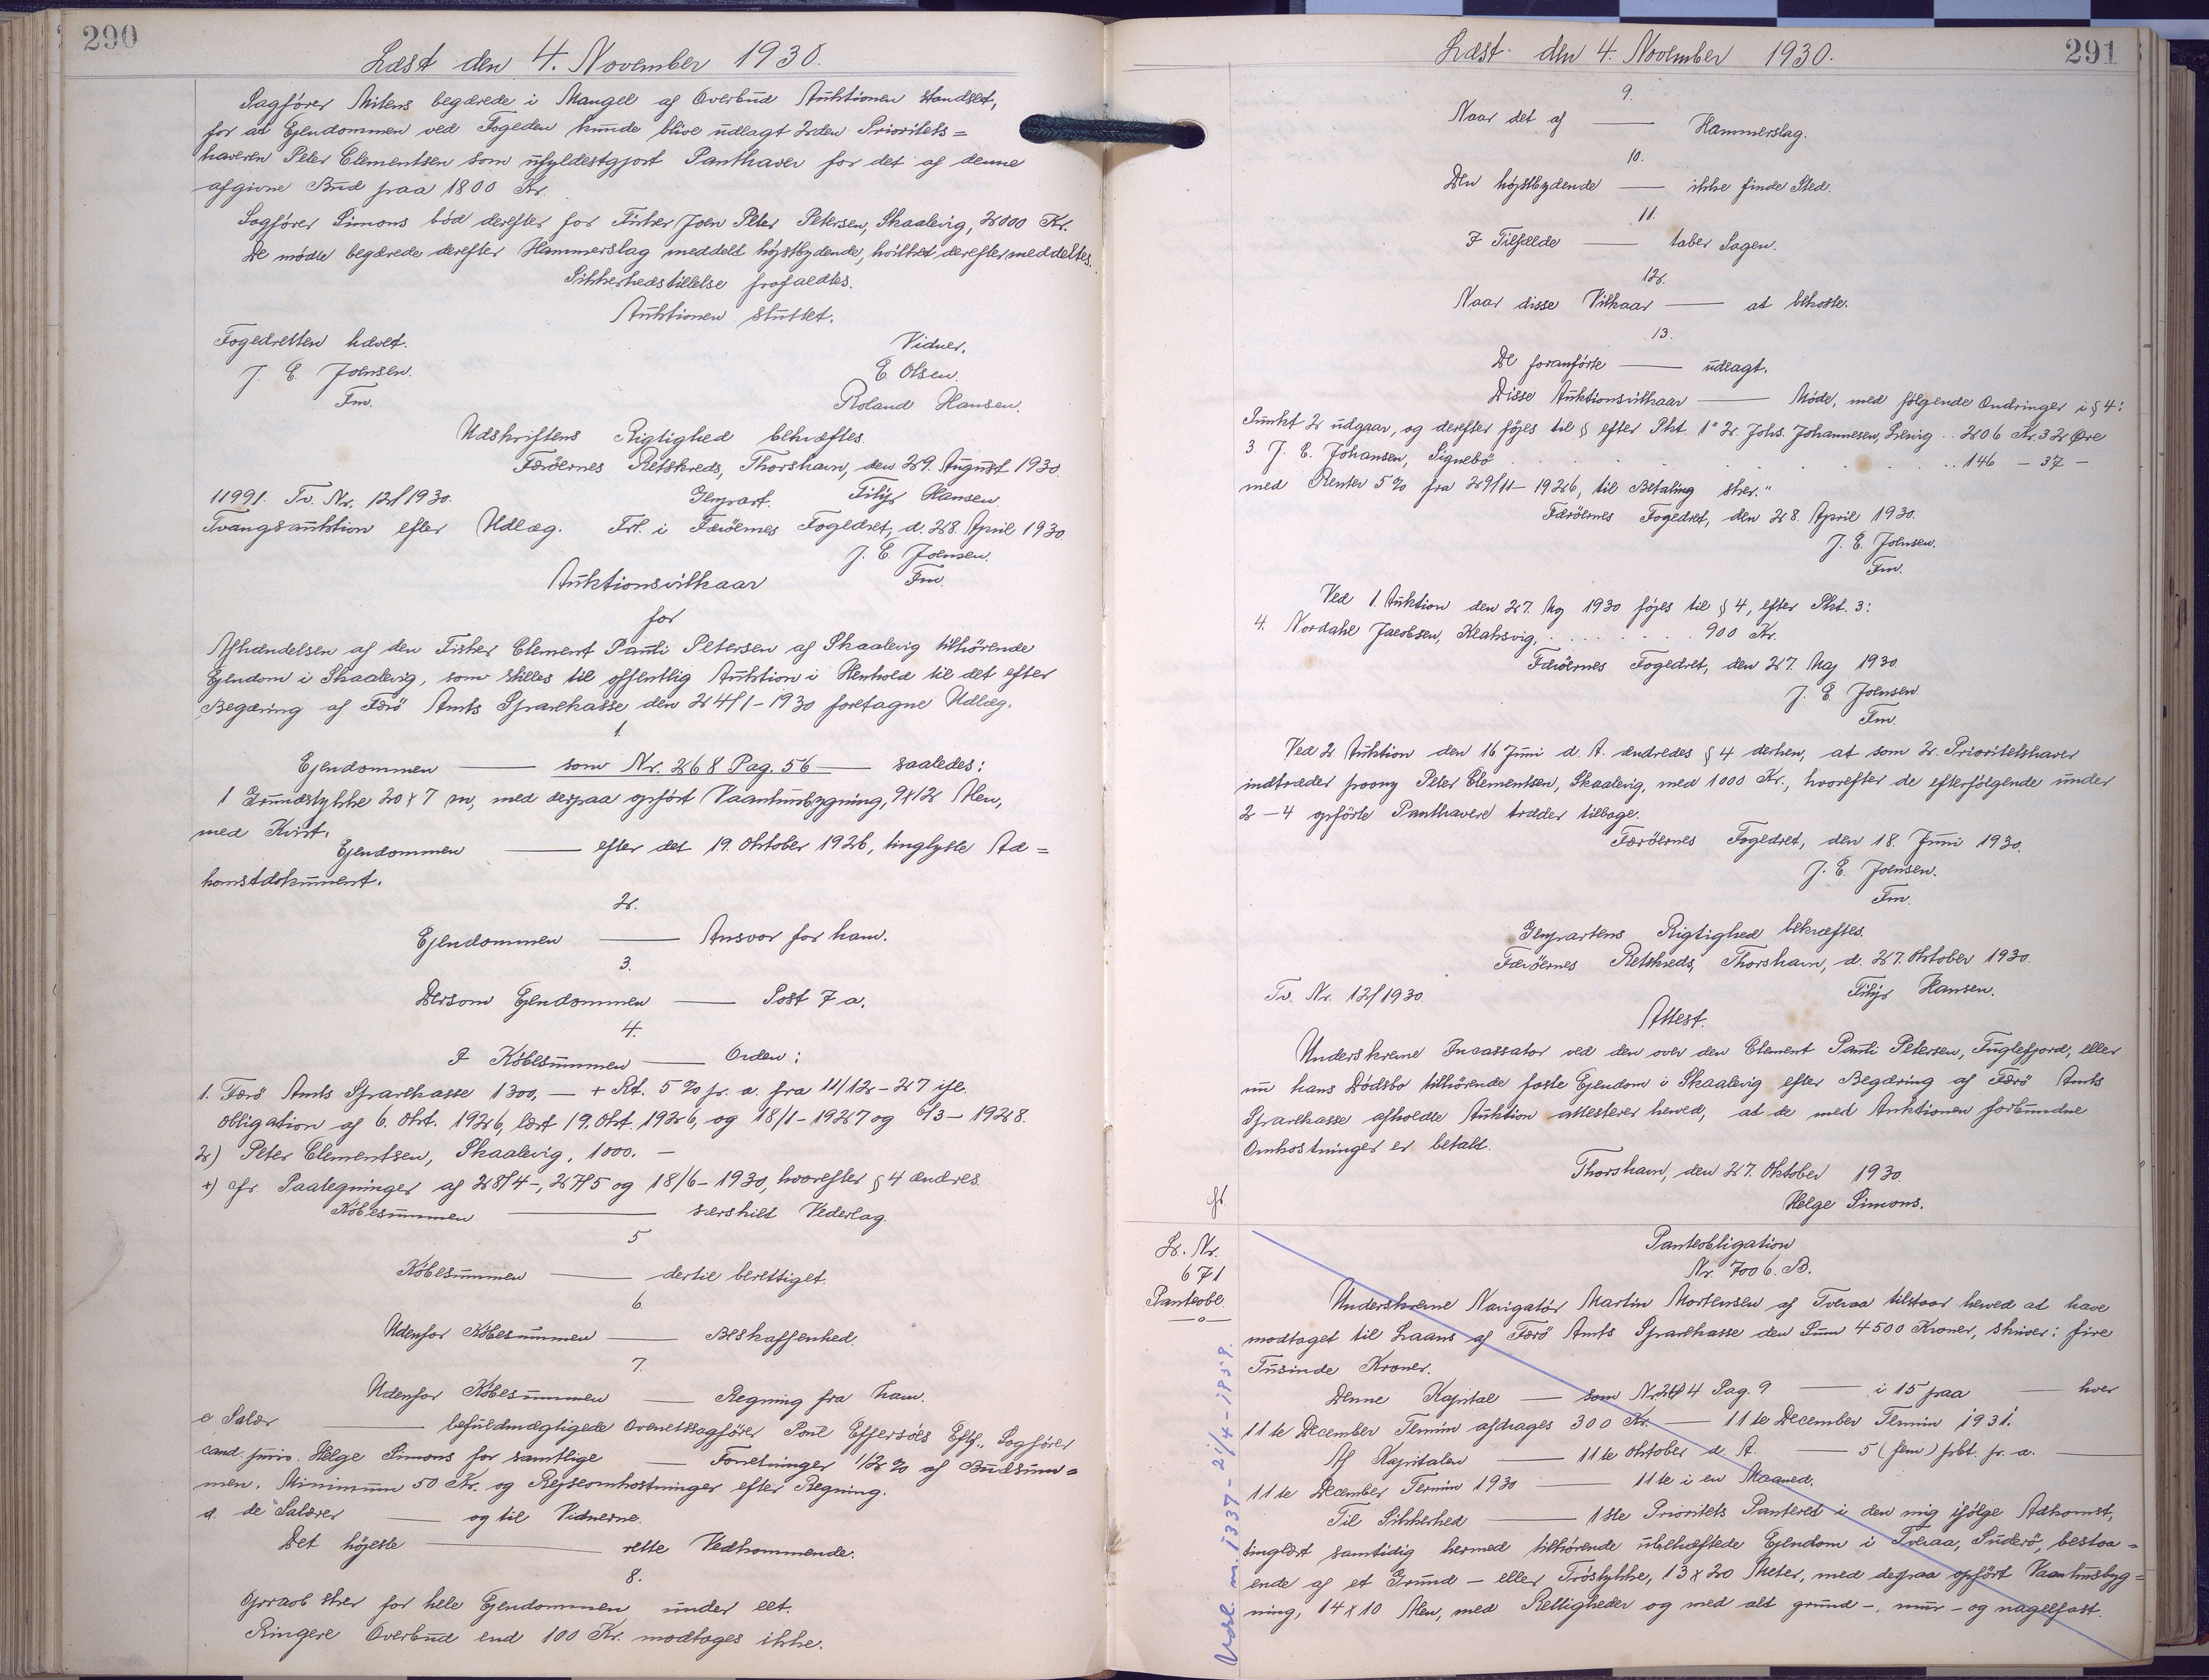 290
Læst den 4. November 1930.
Sagfører Mitens begærede i Mangel af Overbud Auktionen standset,
for at Ejendommen ved Fogeden kunde blive udlagt 2den Prioritets=
haveren Peter Clementsen som ufyldestgjort Panthaver for det af denne
afgivne Bud paa 1800 Kr.
Sagfører Simons bød derefter for Fisker Joen Peter Petersen, Skaalevig, 2000 Kr.
De mødte begærede derefter Hammerslag meddelt højstbydende, hvilket derefter meddeltes.
Sikkerhedstillelse frafaldtes.
Auktionen sluttet.
Fogedretten hævet. Vidner.
J. E. Joensen. E. Olsen.
Fm. Roland Hansen.
Udskriftens Rigtighed bekræftes.
Færöernes Retskreds, Thorshavn, den 29. August 1930.
11991. Tv. Nr. 12/1930. Genpart. Filip Hansen.
Tvangsauktion efter Udlæg. Frl. i Færöernes Fogedret, d. 28. April 1930.
J. E. Joensen.
Auktionsvilkaar Fm.
for
Afhændelsen af den Fisker Clement Pauli Petersen af Skaalevig tilhörende
Ejendom i Skaalevig, som stilles til offentlig Auktion i Henhold til det efter
Begæring af Færö Amts Sparekasse den 24/1-1930 foretagne Udlæg.
1.
Ejendommen — som Nr. 268 Pag. 56 — saaledes:
1 Grundstykke 20 x 7 m, med derpaa opført Vaanhusbygning, 9x12 Alen,
med Kvist.
Ejendommen — efter det 19. Oktober 1926, tinglyste Ad=
komstdokument.
2.
Ejendommen — Ansvar for ham.
3.
Dersom Ejendommen — Post 7 a.
4.
I Købesummen — Orden:
1. Færö Amts Sparekasse 1300, — + Rt. 5 % pr. a. fra 11/12-27 ifl.
Obligation af 6. Okt. 1926, læst 19. Okt. 1926, og 18/1-1927 og 6/3-1928.
2) Peter Clementsen, Skaalevig, 1000. —
+) cfr. Paategninger af 28/4-, 27/5 og 18/6-1930, hvorefter § 4 ændres.
Købesummen — særskilt Vederlag.
5
Købesummen — dertil berettiget.
6.
Udenfor Købesummen — Beskaffenhed.
7.
Udenfor Købesummen — Regning fra ham.
c Salær — befuldmægtigede Overretssagfører Poul Effersöes Eftf., Sagfører
cand. juris. Helge Simons for samtlige — Forretninger 1/2 % af Budsum=
men. Minimum 50 Kr. og Rejseomkostninger efter Regning.
d. de Salærer — og til Vidnerne.
Det højeste — rette Vedkommende.
8.
Opraab sker for hele Ejendommen under eet.
Ringere Overbud end 100 Kr. modtages ikke.
291
Læst den 4. November 1930.
9.
Naar det af — Hammerslag.
10.
Den højstbydende — ikke finde Sted.
11.
I Tilfælde — taber Sagen.
12.
Naar disse Vilkaar — at bekoste.
13.
De foranførte — udlagt.
Disse Auktionsvilkaar — Møde, med følgende Ændringer i § 4:
Punkt 2 udgaar, og derefter føjes til § efter Pkt. 1" 2. Johs. Johannesen, Lervig .. 206 Kr. 32 Øre
3 J. E. Johansen, Signebö . . . . . . 146 - 37 -
med Renter 5 % fra 29/11-1926, til Betaling sker."
Færöernes Fogedret, den 28. April 1930.
J. E. Joensen.
Fm.
Ved 1. Auktion den 27. Maj 1930 føjes til § 4, efter Pkt. 3:
4. Nordahl Jacobsen, Klaksvig, . . . . . . 900 Kr.
Færöernes Fogedret, den 27. Maj 1930.
J. E. Joensen
Fm.
Ved 2. Auktion den 16 Juni d. A. ændredes § 4 derhen, at som 2. Prioritetshaver
indtræder paany Peter Clementsen, Skaalevig, med 1000 Kr., hvorefter de efterfølgende under
2-4 opførte Panthavere træder tilbage.
Færöernes Fogedret, den 18. Juni 1930.
J. E. Joensen.
Fm.
Genpartens Rigtighed bekræftes.
Færöernes Retskreds, Thorshavn, d. 27. Oktober 1930.
Tv. Nr. 12/1930. Filip Hansen.
Attest.
Underskrevne Incassator ved den over den Clement Pauli Petersen, Fuglefjord, eller
nu hans Dødsbo tilhørende faste Ejendom i Skaalevig efter Begæring af Færö Amts
Sparekasse afholdte Auktion attesterer herved, at de med Auktionen forbundne
Omkostninger er betalt.
Thorshavn, den 27. Oktober 1930.
Helge Simons.
Lr. Nr.
671
Panteobl.
—o—
Panteobligation
Nr. 7006. B.
Underskrevne Navigatör Martin Mortensen af Tveraa tilstaar herved at have
modtaget til Laans af Færö Amts Sparekasse den Sum 4500 Kroner, skriver: fire
Tusinde Kroner.
Denne Kapital — som Nr. 264 Pag. 9 — i 15 paa — hver
11te December Termin afdrages 300 Kr. — 11te December Termin 1931.
Af Kapitalen — 11te Oktober d. A. — 5 (fem) pCt. pr. a.
11te December Termin 1930 — 11te i en Maaned.
Til Sikkerhed — 1ste Prioritets Panteret i den mig ifølge Adkomst,
tinglæst samtidig hermed tilhørende ubehæftede Ejendom i Tveraa, Suderö, bestaa=
ende af et Grund- eller Tröstykke, 13 x 20 Meter, med derpaa opført Vaanhusbyg=
ning, 14 x 10 Alen, med Rettigheder og med alt grund-, mur- og nagelfast.